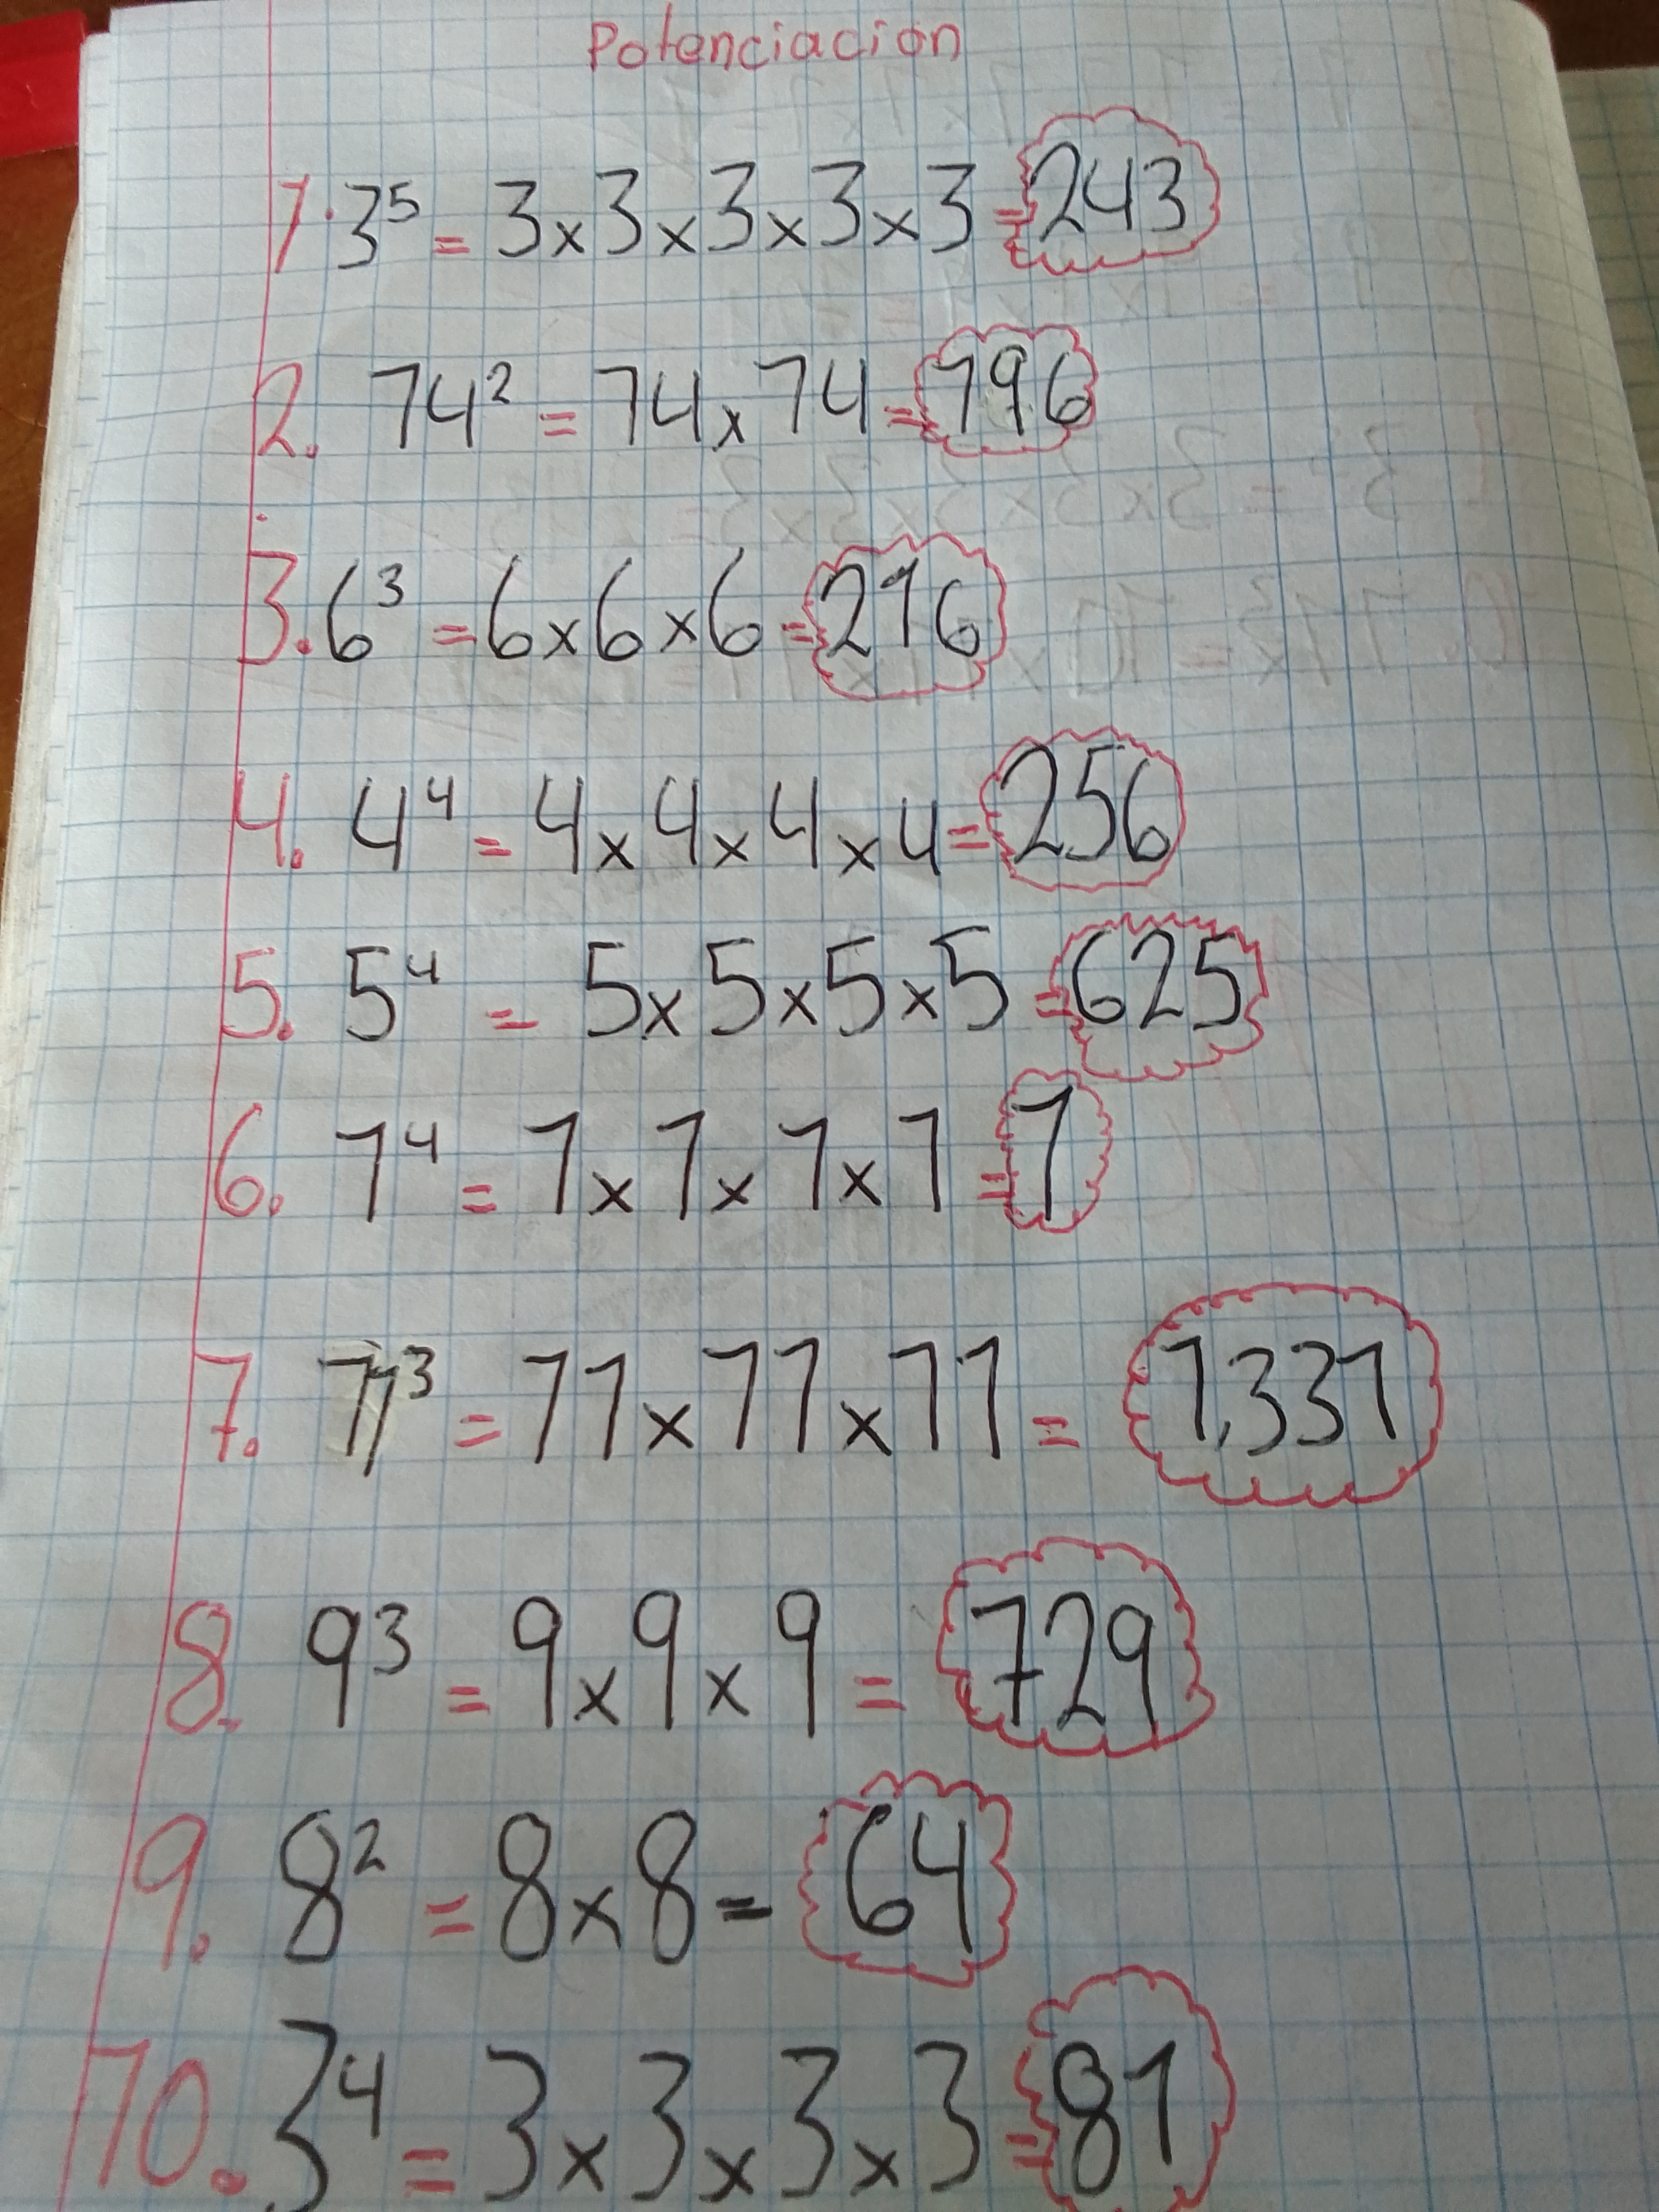 Potenciación
1. 3⁵ = 3x3x3x3x3 = 243
2. 14² = 14x14 = 196
3. 6³ = 6x6x6 = 216
4. 4⁴ = 4x4x4x4 = 256
5. 5⁴ = 5x5x5x5 = 625
6. 1⁴ = 1x1x1x1 = 1
7. 11³ = 11x11x11 = 1,331
8. 9³ = 9x9x9 = 729
9. 8² = 8x8 = 64
10. 3⁴ = 3x3x3x3 = 81